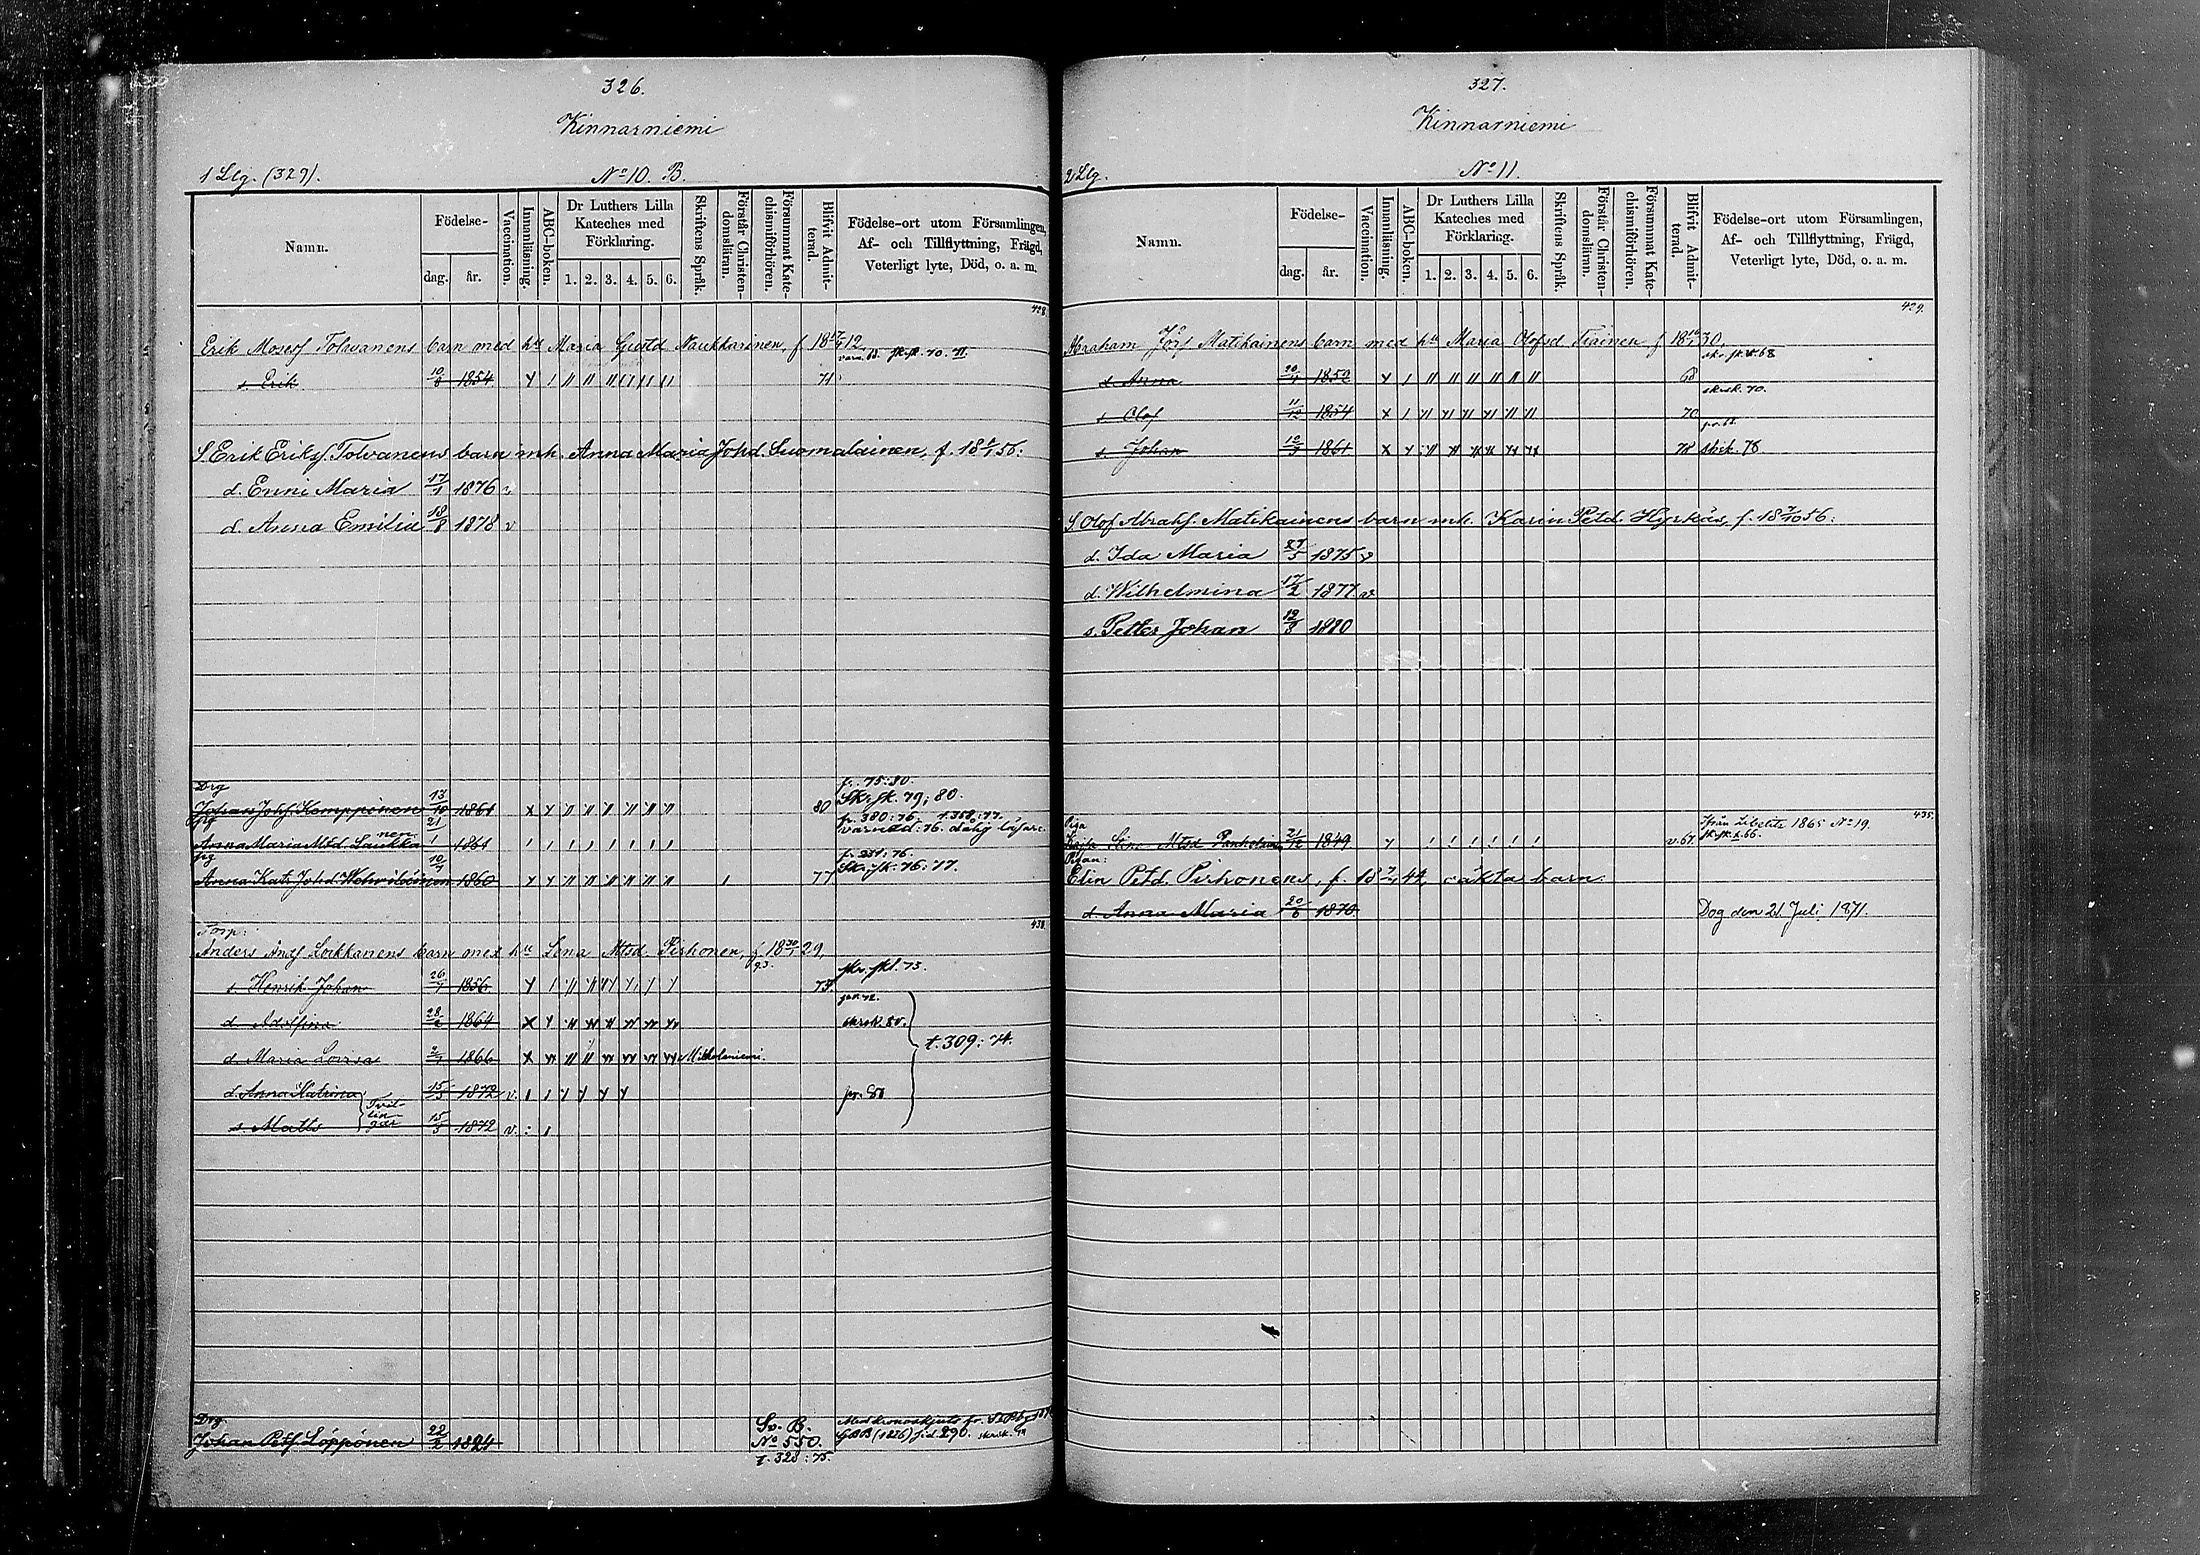 326.
Kinnarniemi
1 Llg. (329).
No 10. B.
Namn.
Födelse-
dag.
år.
Vaccination.
Innanläsning.
ABC-boken.
Dr Luthers Lilla
Kateches med
Förklaring.
1. 2. 3. 4. 5. 6.
Skriftens Språk.
Förstår Christen-
domsläran.
Försummat Kate-
chismiförhören.
Blifvit Admit-
terad.
Födelse-ort utom Församlingen,
Af- och Tillflyttning, Frägd,
Veterligt lyte, Död, o. a. m.
428.
Erik Mosesf Tolvanens barn med hu Maria Naukkarinen, f 18 12
s. Erik 10/8 1854 71
S. Erik Eriksf. Tolvanens barn mh. Anna Maria Johd. Suomalainen, f. 18 56:
d. Enni Maria 17/1 1876 v
d. Anna Emilia 18/8 1878 v
Drg
Johan Johsf. Kemppinen 13/10 1861 80
fr. 75:80.
Skrsk. 79; 80.
Anna Maria Mtd Saukkanen 21/1 1861
fr. 380:76 t. 358:77.
varnad: 76. dålig läsare.
Anna Kat. Johd Wehviläinen 10/7 1860 77
fr. 231:76.
Skrsk. 76: 77.
Torp:
438.
Anders Andf Loikkanens barn med hu Lena Mtsd. Pirhonen, f 18 29,
s. Henrik Johan 26/7 1856 73.
skr. skl. 73.
d. Adolfina 28/2 1864
skrsk. 80.
t. 309: 74.
d. Maria Lovisa 1866
d. Anna Katrina 15/5 1872 v.
pr. 81
Tvil-
lin-
gar
s. Matts 15/5 1872 v.
Drg
Johan Petsf. Löppönen 22/2 1824
Sv. B.
No 550.
t. 328:75.
327.
Kinnarniemi
2 Llg.
No 11.
Namn.
Födelse-
dag.
år.
Vaccination.
Innanläsning.
ABC-boken.
Dr Luthers Lilla
Kateches med
Förklaring.
1. 2. 3. 4. 5. 6.
Skriftens Språk.
Förstår Christen-
domsläran.
Försummat Kate-
chismiförhören.
Blifvit Admit-
terad.
Födelse-ort utom Församlingen,
Af- och Tillflyttning, Frägd,
Veterligt lyte, Död, o. a. m.
429.
Abraham Matikainens barn med hu Maria Olofsd Tiainen f 18 30,
d. Anna 20/4 1852 68
skrsk. 70.
s. Olof 11/12 1854 70
s. Johan 1861 78 skrsk. 78
S. Olof Abrahf. Matikainens barn mh. Karin Petd. Hyrkäs, f. 18 7/10 56:
d. Ida Maria 27/5 1875 v
d. Wilhelmina 17/2 1877 v
s. Petter Johan 19/8 1880
435.
Piga
Kaisa Mtsd 21/12 1849 v. 67.
Ifrån Libelits 1865 No 19.
Pigan:
Elin Petd. Pirhonens, f. 18 44, oäkta barn:
d. Anna Maria 20/6 1870
Dog den 21 Juli 1871.